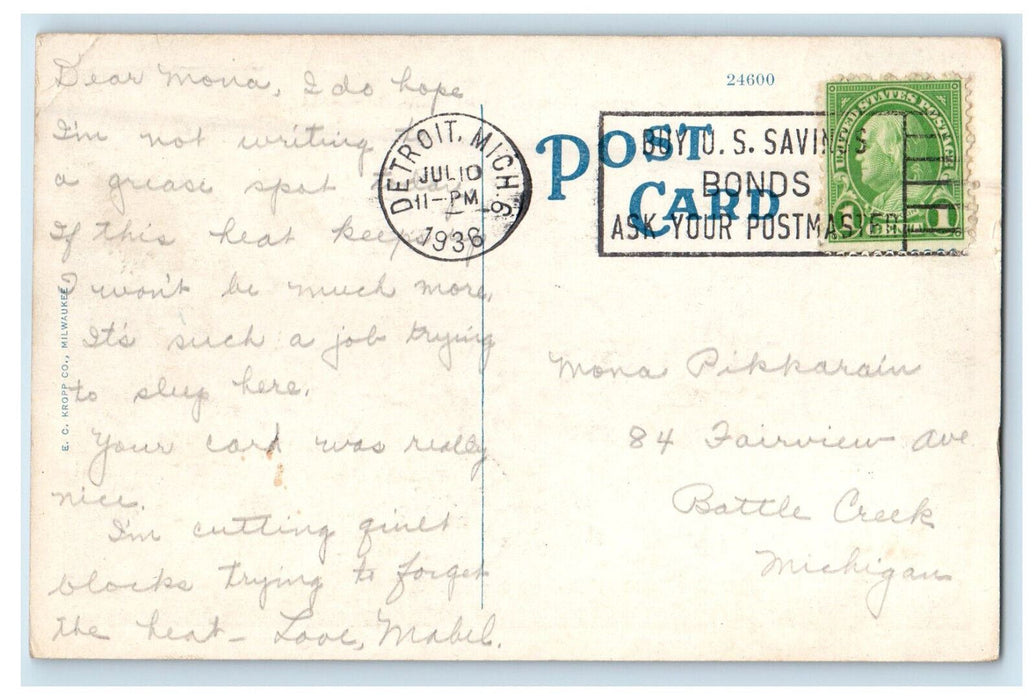 Dear Mona, I do hope
I'm not writing to
a grease spot today
If this heat keeps up
I won't be much more.
It's such a job trying
to sleep here.
Your card was really
nice.
I'm cutting quilt
blocks trying to forget
the heat - Love, Mabel.
E. C. KROPP CO., MILWAUKEE
DETROIT, MICH. 6
JUL 10
11-PM
1936
24600
POST
CARD
BUY U.S. SAVINGS
BONDS
ASK YOUR POSTMASTER
UNITED STATES POSTAGE
1 1
Mona Pikkarain
84 Fairview Ave
Battle Creek
Michigan